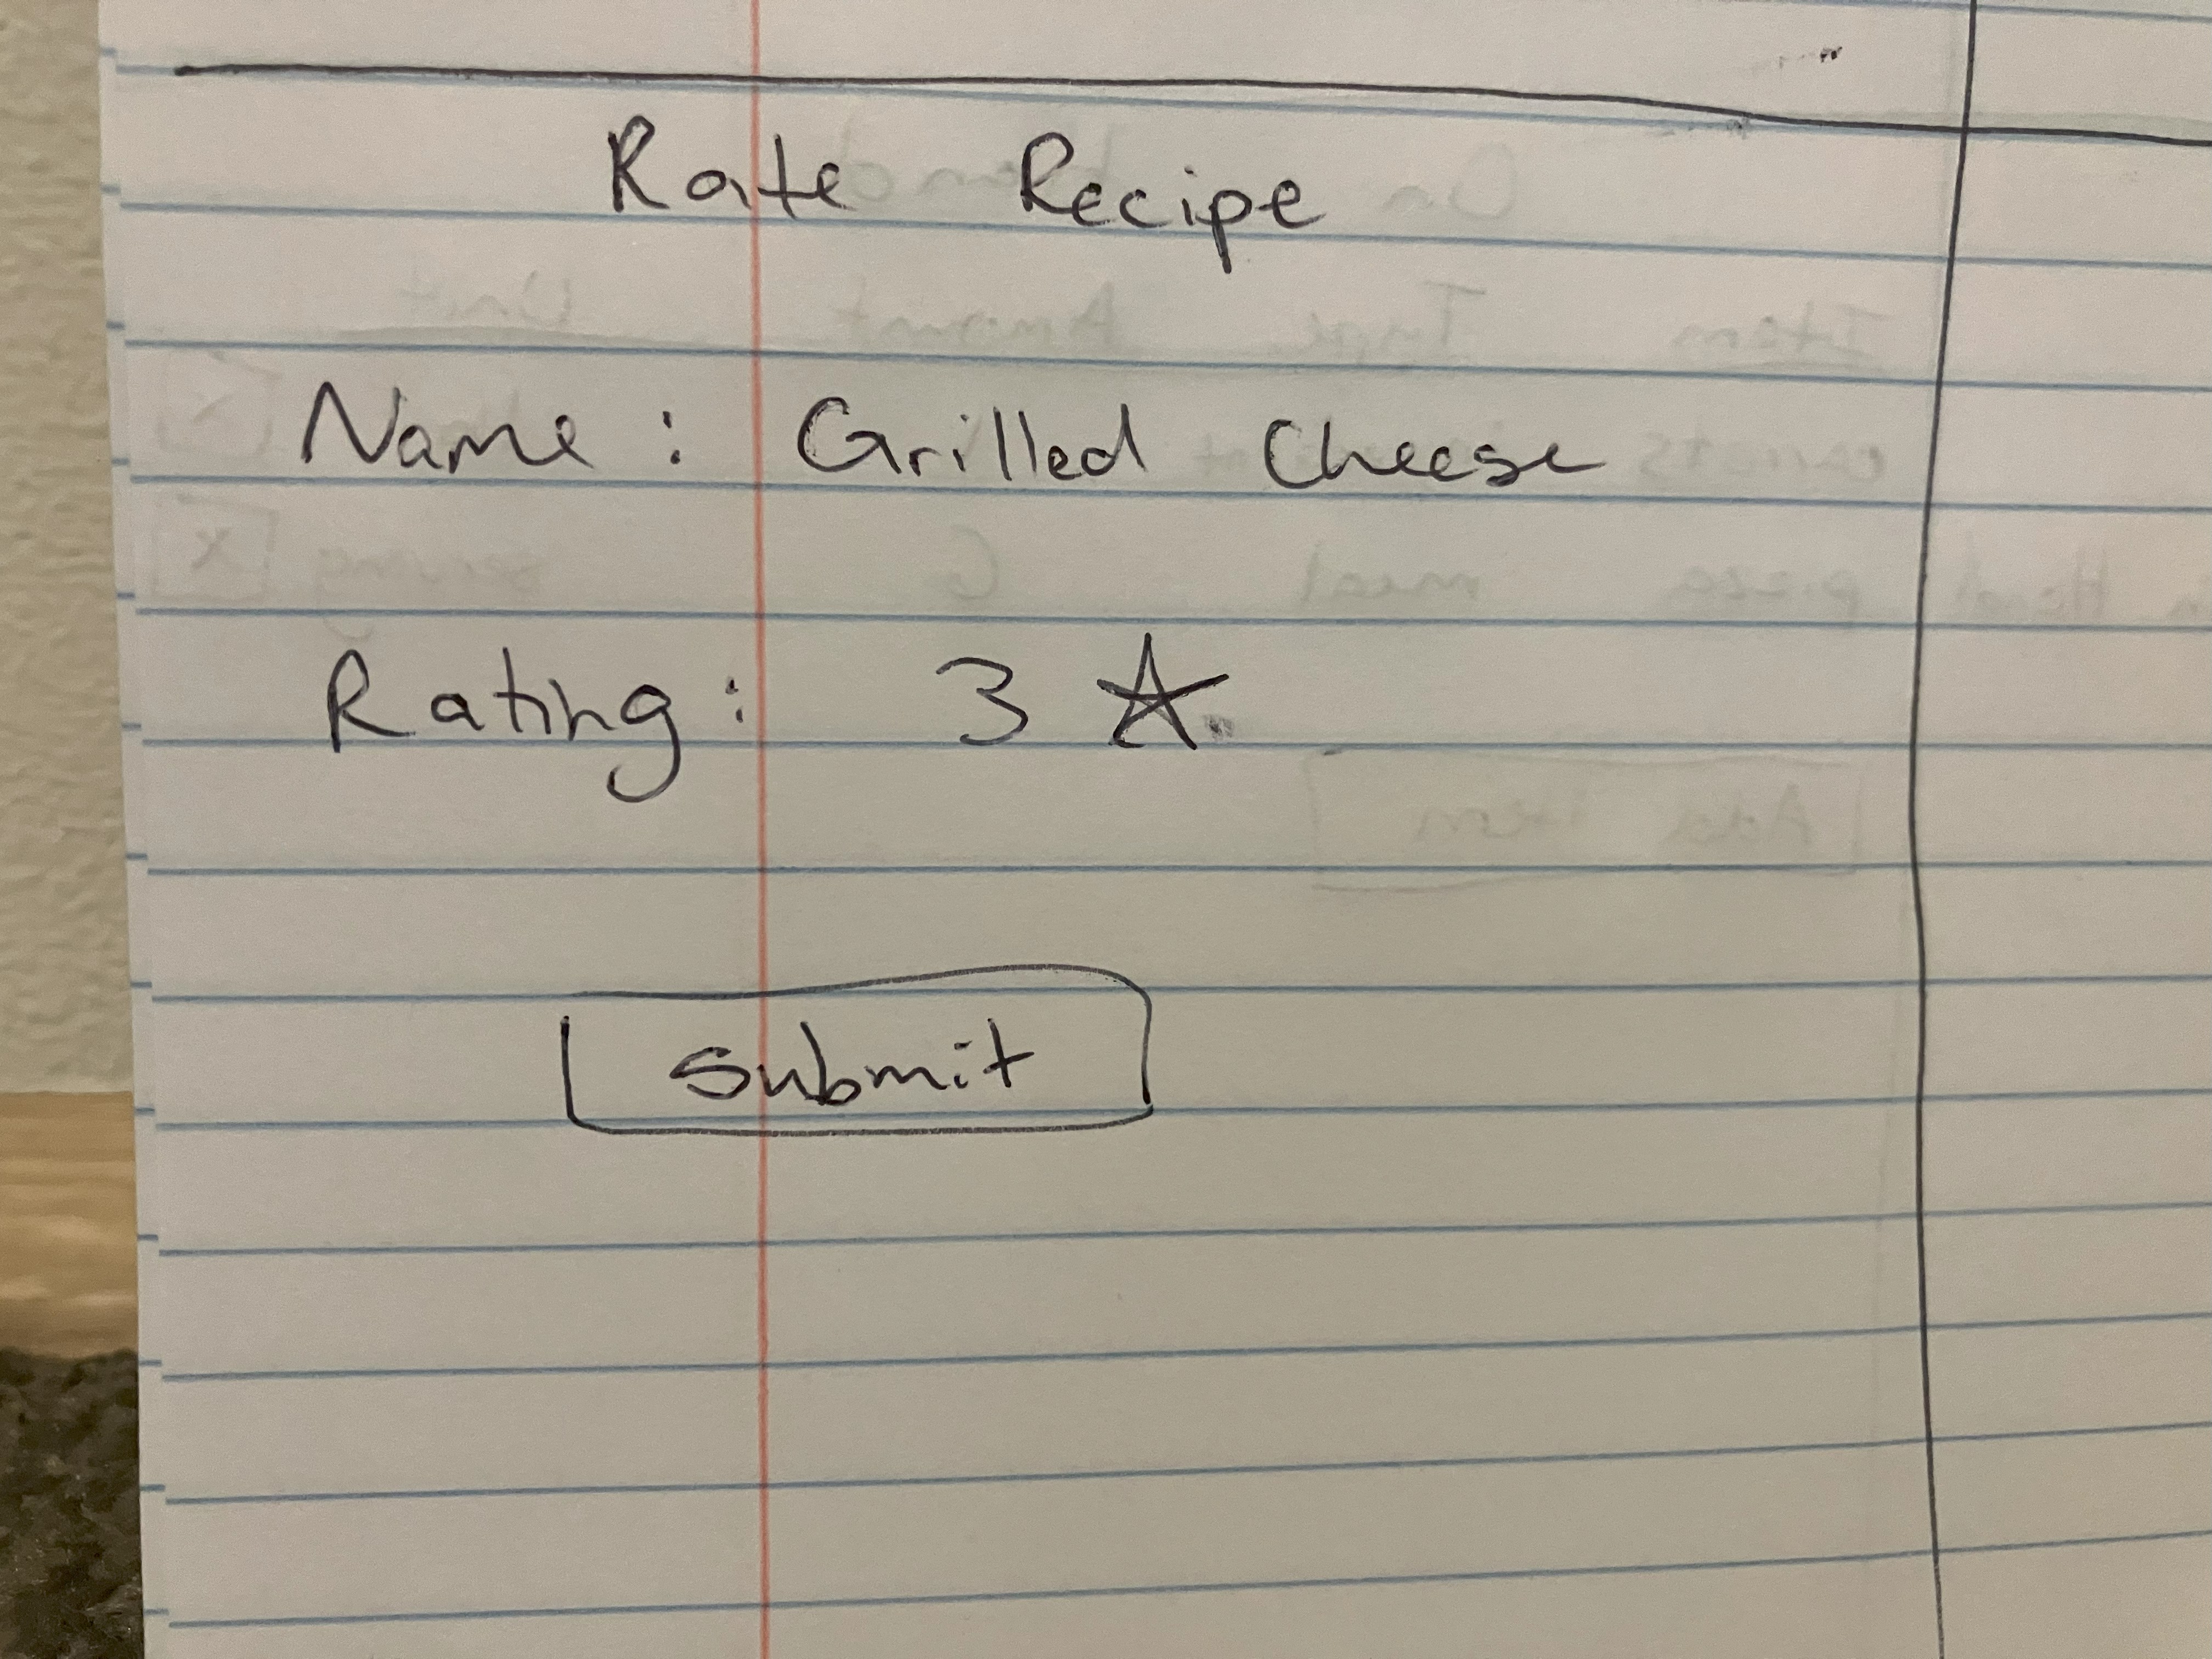 Rate Recipe
Name: Grilled Cheese
Rating: 3 ☆
Submit